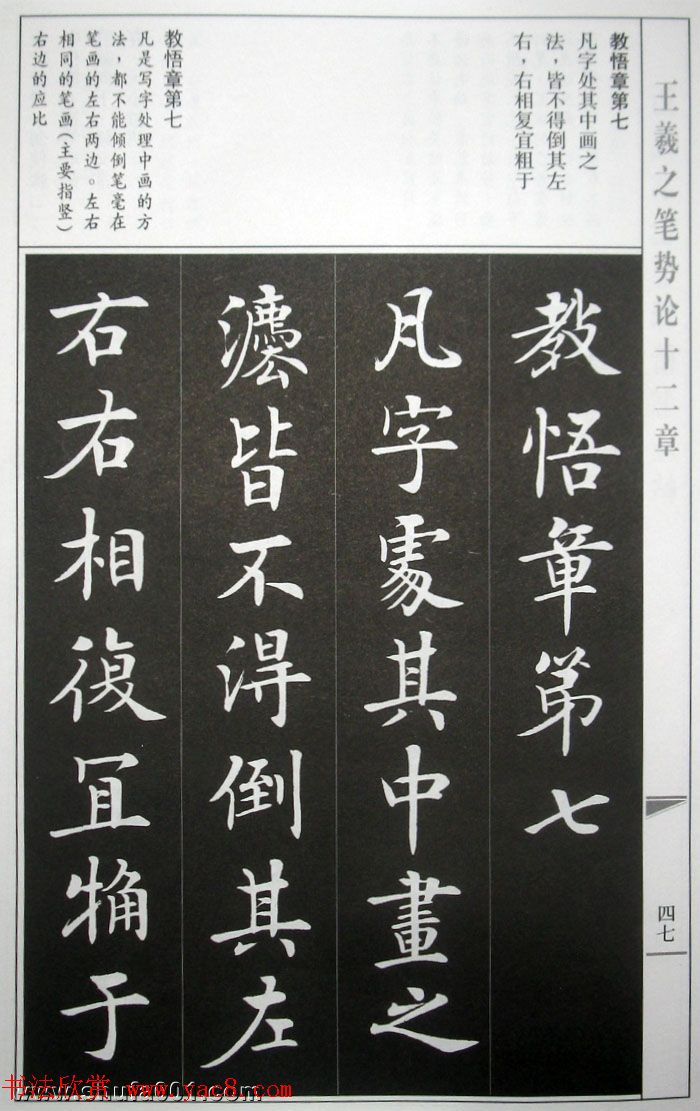 王羲之笔势论十二章
四七
教悟章第七
凡字处其中画之
法，皆不得倒其左
右，右相复宜粗于
教悟章第七
凡是写字处理中画的方
法，都不能倾倒笔毫在
笔画的左右两边。左右
相同的笔画（主要指竖）
右边的应比
教悟章第七
凡字處其中畫之
灋皆不得倒其左
右右相復宜觕于
书法欣赏 www.yac8.com